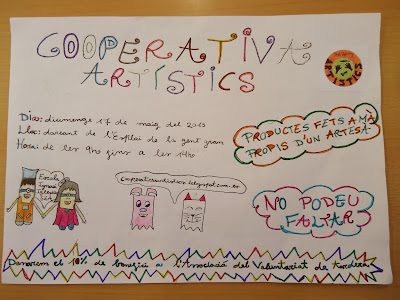 COOPERATIVA
ARTÍSTICS
ARTÍSTICS
Dia: diumenge 17 de maig del 2015
Lloc: davant de l'Esplai de la gent gran
Hora: de les 9h fins a les 14h.
PRODUCTES FETS A MÀ
PROPIS D'UN ARTESÀ.
Escola
NO PODEU
FALTAR
Donarem el 10% de benefici a l'Associació del Voluntariat de